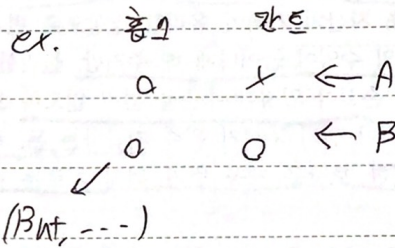 ex. 흄 칸트
o x ← A
o o ← B
(But, ---)